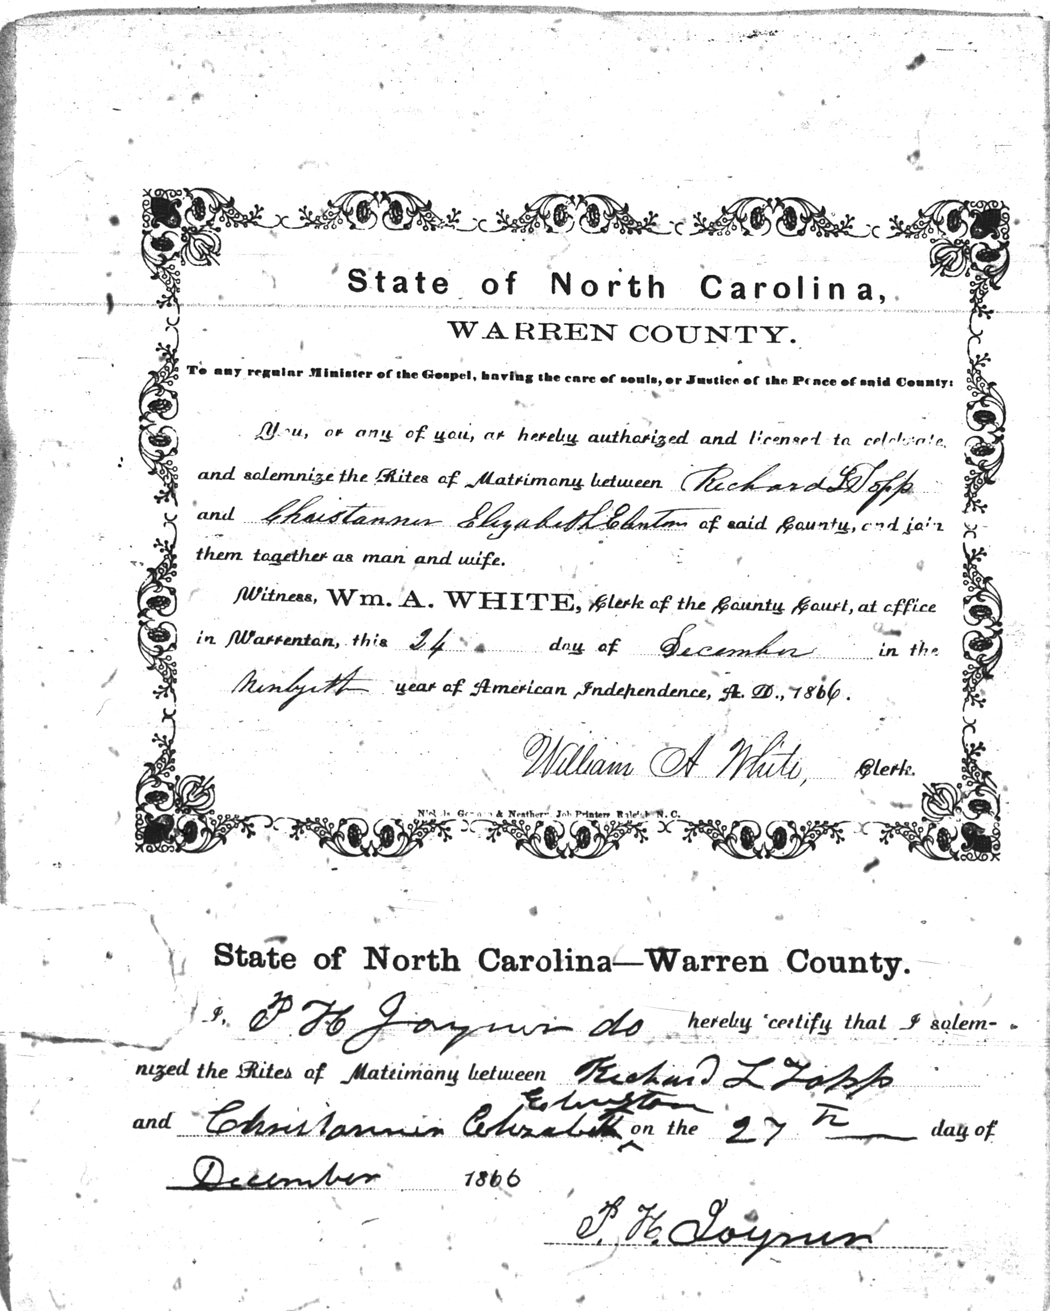 State of North Carolina,
WARREN COUNTY.
To any regular Minister of the Gospel, having the care of souls, or Justice of the Peace of said County:
You, or any of you, ar hereby authorized and licensed to celebrate
and solemnize the Rites of Matrimony between Richard L Topp
and Christanner Elizabeth of said County, and join
them together as man and wife.
Witness, Wm. A. WHITE, Clerk of the County Court, at office
in Warrenton, this 24 day of December in the
year of American Independence, A. D., 1866.
William A White, Clerk.
& Job Printers Raleigh N. C.
State of North Carolina—Warren County.
I, P H Joyner do hereby certify that I solem-
nized the Rites of Matrimony between Richard L Topp
and Christanner Elizabeth on the 27th day of
December 1866
P. H. Joyner